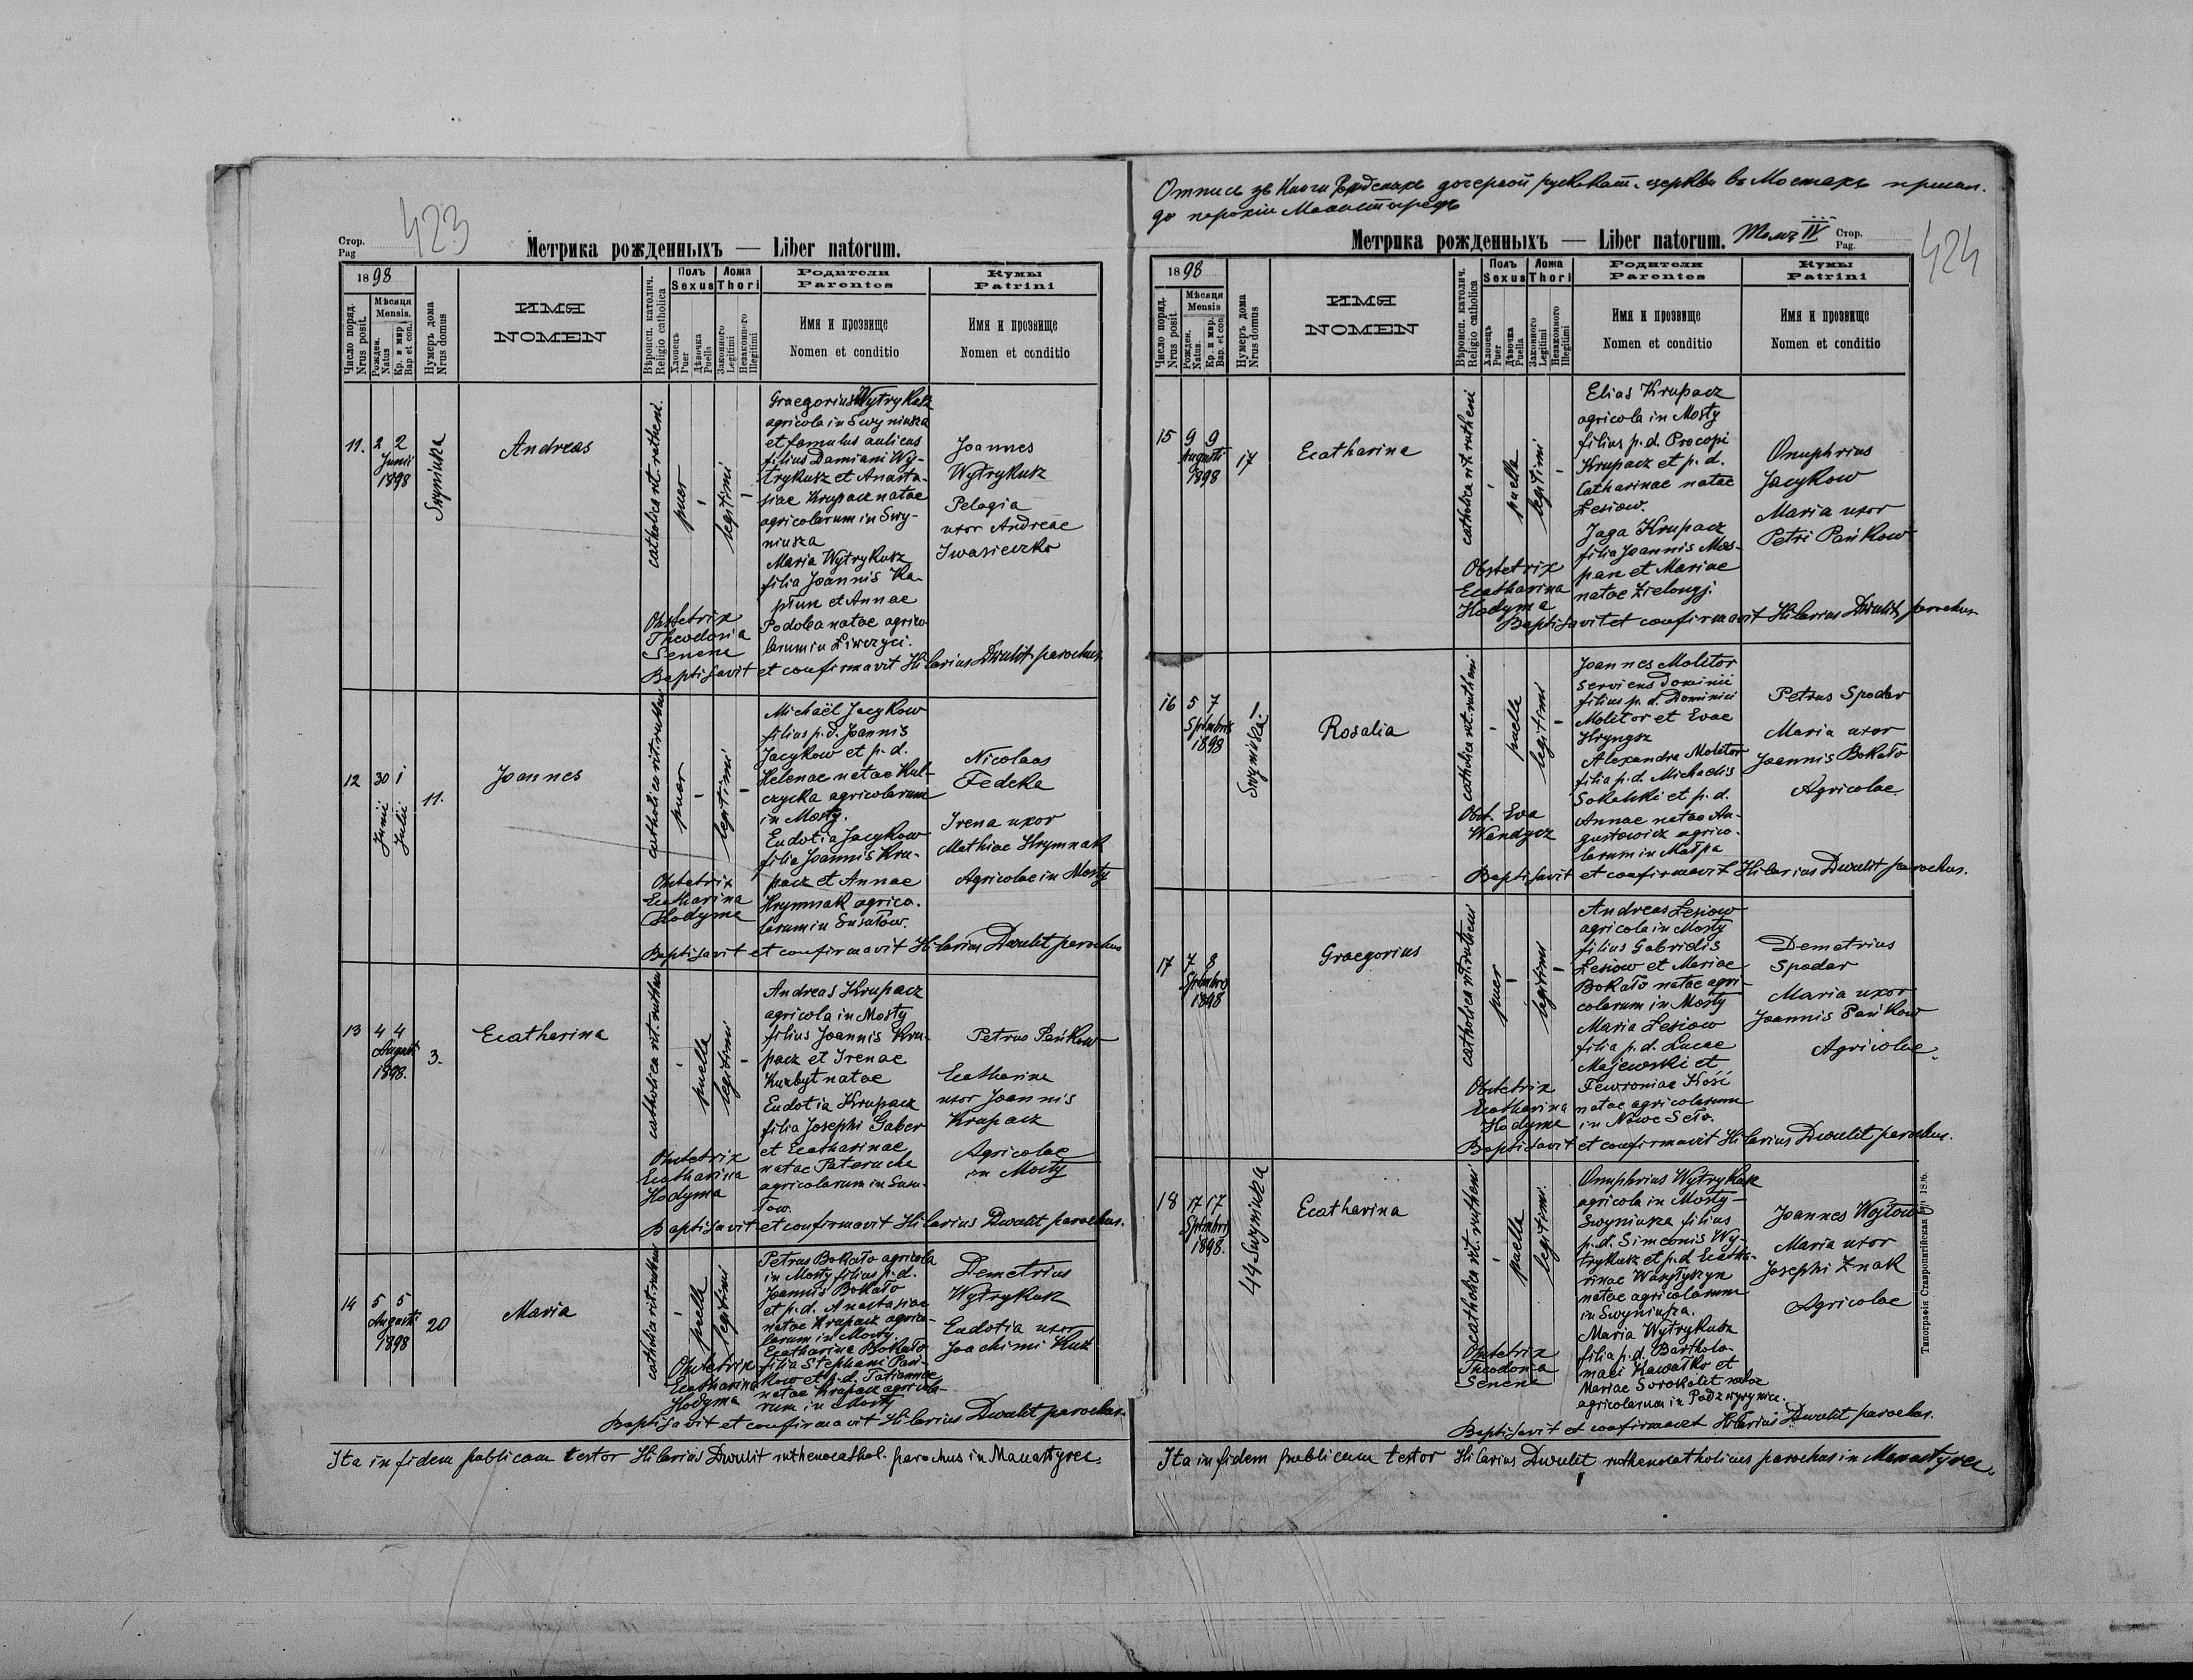 423
Стор.
Pag
Метрика рожденныхъ — Liber natorum.
1898
Число поряд.
Nrus posit.
Мѣсяця
Mensis.
Рожден.
Natus
Кр. и мир.
Bap et con.
Нумеръ дома
Nrus domus
ИМЯ
NOMEN
Вѣроисп. католич.
Religio catholica
Полъ
Sexus
Хлопецъ
Puer
Дѣвочка
Puella
Ложа
Thori
Законного
Legitimi
Незаконного
Illegitimi
Родители
Parentes
Имя и прозвище
Nomen et conditio
Кумы
Patrini
Имя и прозвище
Nomen et conditio
11.
2 2
Junii
1898
Swyniusza
Andreas
catholica rit. rutheni.
puer
legitimi
Graegorius Wytrykusz
agricola in Swyniusza
et famulus aulicus
filius Damiani Wy-
trykusz et Anasta-
siae Krupacz natae
agricolarum in Swy-
niusza
Maria Wytrykusz
filia Joannis Ka-
płun et Annae
Podolea natae agrico
larum in
Joannes
Wytrykusz
Pelagia
uxor Andreae
Iwasieczko
Obstetrix
Theodosia
Senene
Baptisavit et confirmavit Hilarius Dwulit parochus.
12
30 1
Junii
Julii
11.
Joannes
catholica rit. rutheni
puer
legitimi
Michaël Jacykow
filius p. d. Joannis
Jacykow et p. d.
Helenae natae Kul-
czycka agricolarum
in Mosty.
Eudotia Jacykow
filia Joannis Kru-
pacz et Annae
Hrymnak agrico-
larum in Susułow.
Nicolaas
Fedeka
Irena uxor
Mathiae Hrymnak
Agricolae in Mosty
Obstetrix
Ecatharina
Hodyma
Baptisavit et confirmavit Hilarius Dwulit parochus
13
4 4
August
1898.
3.
Ecatharina
catholica rit. rutheni
puella
legitimi
Andreas Krupacz
agricola in Mosty
filius Joannis Kru-
pacz et Irenae
Kuzbyt natae
Eudotia Krupacz
filia Josephi Gaber
et Ecatharinae
natae Pataracha
agricolarum in Susu-
łow.
Petrus Pańkow
Ecatharina
uxor Joannis
Krupacz
Agricolae
in Mosty
Obstetrix
Ecatharina
Hodyma
Baptisavit et confirmavit Hilarius Dwulit parochus.
14
5 5
Augusti
1898
20
Maria
catholica rit. rutheni
puella
legitimi
Petrus Bokało agricola
in Mosty filius p. d.
Joannis Bokało
et p. d. Anastasiae
natae Krupacz agrico-
larum in Mosty
Ecatharina Bokało
filia Stephani Pań-
kow et p. d. Tatiannae
natae Krupacz agricola-
rum in Mosty
Demetrius
Wytrykusz
Eudotia uxor
Joachimi Kuz
Obstetrix
Ecatharina
Hodyma
Baptisavit et confirmavit Hilarius Dwulit parochus.
Ita in fidem publicam testor Hilarius Dwulit ruthenocathol. parochus in Manastyrec.
Отпись зъ Книги дочерной церкви въ Мостахъ
до парохіи Манастырецъ
Томъ IV
424
Метрика рожденныхъ — Liber natorum.
Стор.
Pag.
1898
Число поряд.
Nrus posit.
Мѣсяця
Mensis
Рожден.
Natus.
Кр. и мир.
Bap. et con
Нумеръ дома
Nrus domus
ИМЯ
NOMEN
Вѣроисп. католич.
Religio catholica
Полъ
Sexus
Хлопецъ
Puer
Дѣвочка
Puella
Ложа
Thori
Законного
Legitimi
Незаконного
Illegitimi
Родители
Parentes
Имя и прозвище
Nomen et conditio
Кумы
Patrini
Имя и прозвище
Nomen et conditio
15
9 9
Augusti
1898
17
Ecatharina
catholica rit. rutheni
puella
legitimi
Elias Krupacz
agricola in Mosty
filius p. d. Procopi
Krupacz et p. d.
Catharinae natae
Lesiow.
Jaga Krupacz
filia Joannis Mos-
pan et Mariae
natae
Onuphrius
Jacykow
Maria uxor
Petri Pańkow
Obstetrix
Ecatharina
Hodyma
Baptisavit et confirmavit Hilarius Dwulit parochus
16
5 7
Sptmbris
1898
Swyniusza
Rosalia
catholica rit. rutheni
puella
legitimi
Joannes Molitor
serviens Dominii
filius p. d. Dominici
Molitor et Evae
Hryngsz
Alexandra Molitor
filia p. d. Michaelis
Sokalski et p. d.
Annae natae Au-
gustowicz agrico-
larum in Małpa
Petrus Spodar
Maria uxor
Joannis Bokało
Agricolae
Obst. Eva
Wandycz
Baptisavit et confirmavit Hilarius Dwulit parochus.
17
7 8
Sptmbris
1898
Graegorius
catholica rit. rutheni
puer
legitimi
Andreas Lesiow
agricola in Mosty
filius Gabrielis
Lesiow et Mariae
Bokało natae agri-
colarum in Mosty
Maria Lesiow
filia p. d. Lucae
Majewski et
Fewroniae Kość
natae agricolarum
in Nowe Seło.
Demetrius
Spodar
Maria uxor
Joannis Pańkow
Agricolae.
Obstetrix
Ecatharina
Hodyma
Baptisavit et confirmavit Hilarius Dwulit parochus.
18
17 17
Sptmbris
1898.
44 Swyniusza
Ecatharina
catholica rit. rutheni
puella
legitimi.
Onuphrius Wytrykusz
agricola in Mosty—
Swyniusza filius
p. d. Simeonis Wy-
trykusz et p. d. Ecatha-
rinae
natae agricolarum
in Swyniusza.
Maria Wytrykusz
filia p. d. Bartholo-
maei Kawałko et
Mariae Sorokolit natae
agricolarum in Podzwyrynice.
Joannes Wojtow
Maria uxor
Josephi Znak
Agricolae
Obstetrix
Theodosia
Senene
Baptisavit et confirmavit Hilarius Dwulit parochus.
Ita in fidem publicam testor Hilarius Dwulit ruthenocatholicus parochus in Manastyrec.
Типографія Ставропигійская 1896.